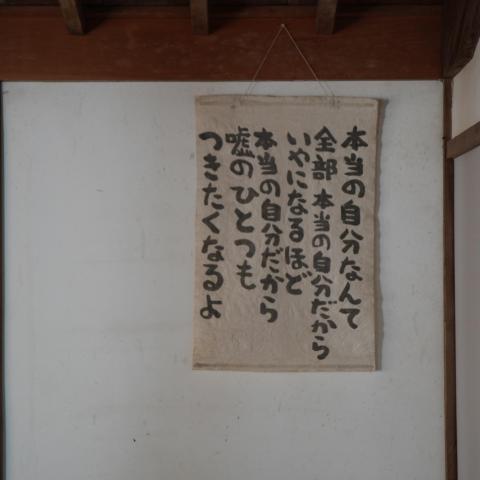 本当の自分なんて
全部 本当の自分だから
いやになるほど
本当の自分だから
嘘のひとつも
つきたくなるよ